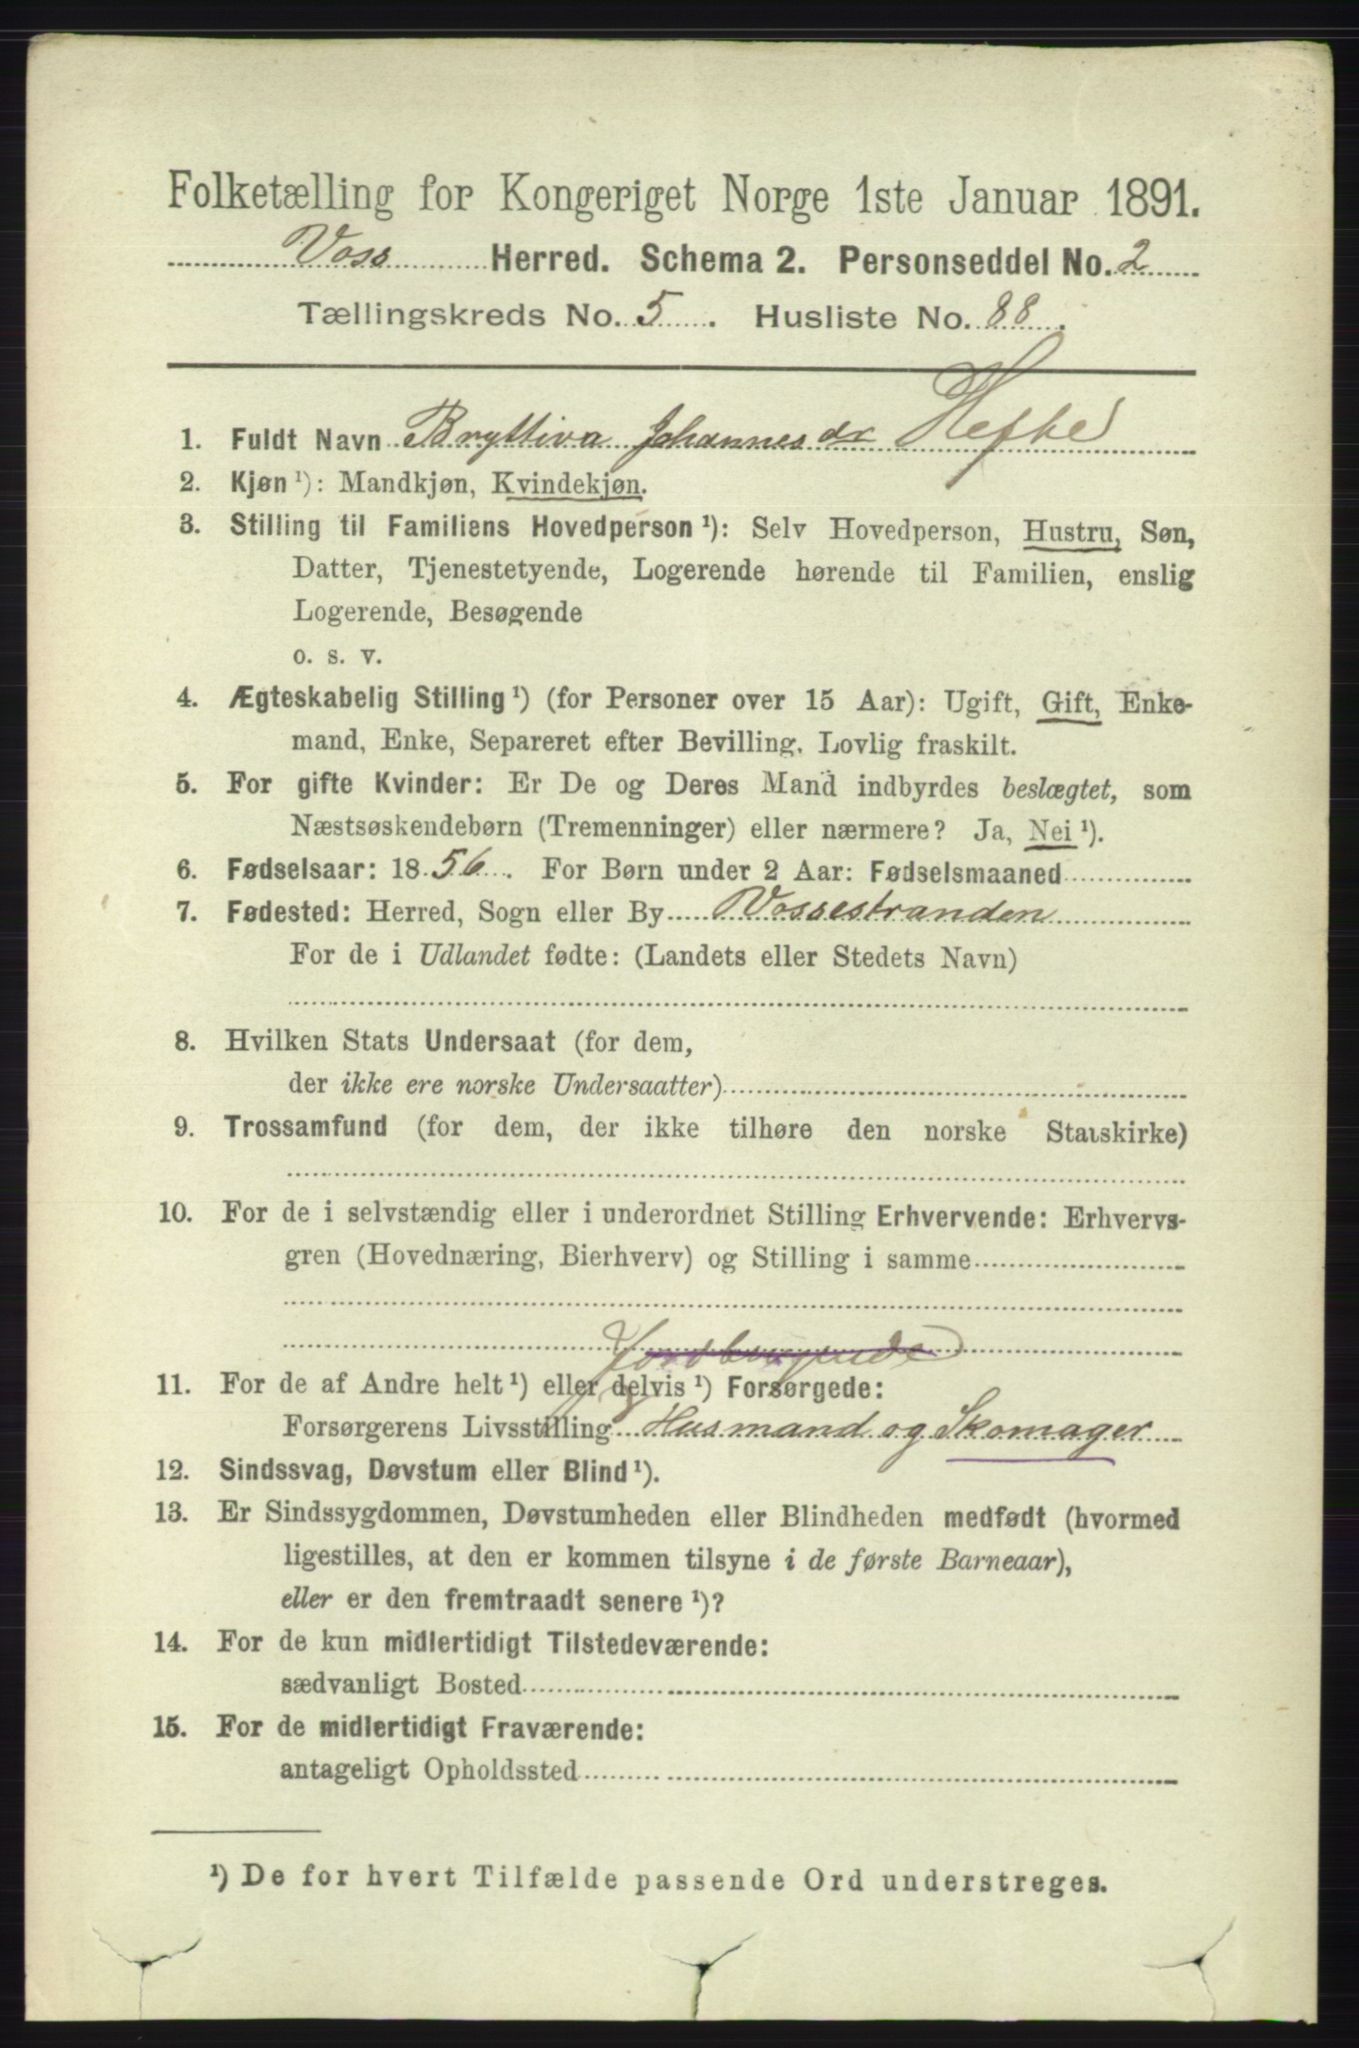 Folketælling for Kongeriget Norge 1ste Januar 1891.
Voss Herred. Schema 2. Personseddel No. 2
Tællingskreds No. 5. Husliste No. 88.
1. Fuldt Navn Bryttiva Johannesdr Hefte
2. Kjøn ¹): Mandkjøn, Kvindekjøn.
3. Stilling til Familiens Hovedperson ¹): Selv Hovedperson, Hustru, Søn,
Datter, Tjenestetyende, Logerende hørende til Familien, enslig
Logerende, Besøgende
o. s. v.
4. Ægteskabelig Stilling ¹) (for Personer over 15 Aar): Ugift, Gift, Enke-
mand, Enke, Separeret efter Bevilling. Lovlig fraskilt.
5. For gifte Kvinder: Er De og Deres Mand indbyrdes beslægtet, som
Næstsøskendebørn (Tremenninger) eller nærmere? Ja, Nei ¹).
6. Fødselsaar: 1856. For Børn under 2 Aar: Fødselsmaaned
7. Fødested: Herred, Sogn eller By Vossestranden
For de i Udlandet fødte: (Landets eller Stedets Navn)
8. Hvilken Stats Undersaat (for dem,
der ikke ere norske Undersaatter)
9. Trossamfund (for dem, der ikke tilhøre den norske Statskirke)
10. For de i selvstændig eller i underordnet Stilling Erhvervende: Erhvervs-
gren (Hovednæring, Bierhverv) og Stilling i samme
Jordbrugende
11. For de af Andre helt ¹) eller delvis ¹) Forsørgede:
Forsørgerens Livsstilling Husmand og Skomager
12. Sindssvag, Døvstum eller Blind ¹).
13. Er Sindssygdommen, Døvstumheden eller Blindheden medfødt (hvormed
ligestilles, at den er kommen tilsyne i de første Barneaar),
eller er den fremtraadt senere ¹)?
14. For de kun midlertidigt Tilstedeværende:
sædvanligt Bosted
15. For de midlertidigt Fraværende:
antageligt Opholdssted
¹) De for hvert Tilfælde passende Ord understreges.